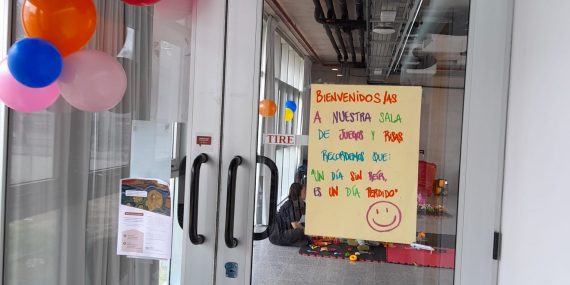 BIENVENIDOS/AS
A NUESTRA SALA
DE JUEGOS Y RISAS
RECORDEMOS QUE:
"UN DÍA SIN REÍR,
ES UN DÍA PERDIDO"
TIRE